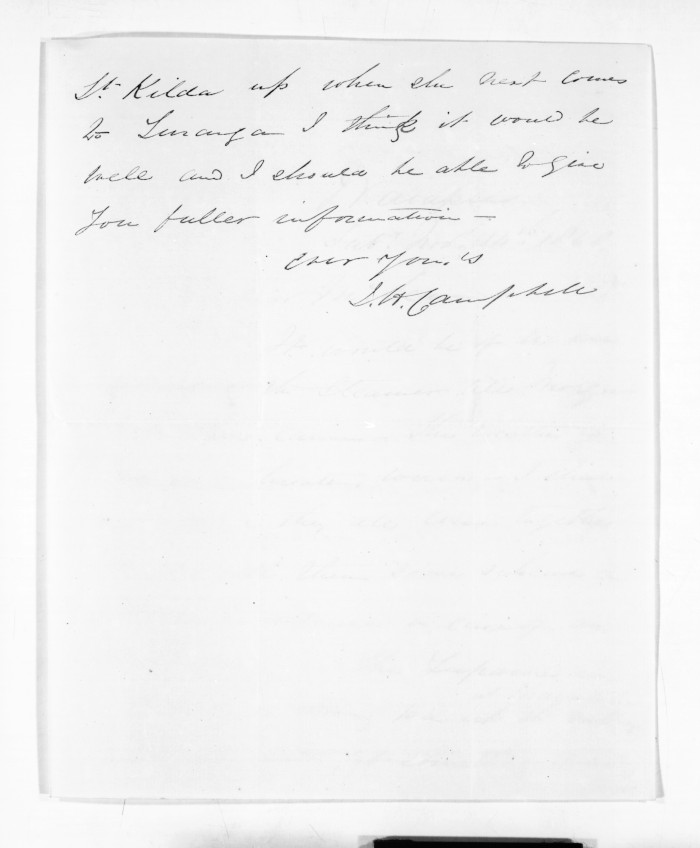 St. Kilda up when she next comes
to Turanga I think it would be
well and I should be able to give
you fuller information —
Ever Yours
J. H. Campbell